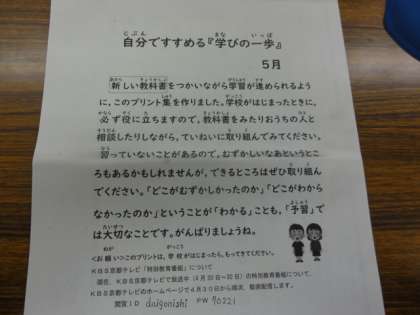 自分ですすめる『学びの一歩』
5月
新しい教科書をつかいながら学習が進められるよう
に、このプリント集を作りました。学校がはじまったときに、
必ず役に立ちますので、教科書をみたりおうちの人と
相談したりしながら、ていねいに取り組んでみてください。
習っていないことがあるので、むずかしいなあというとこ
ろもあるかもしれませんが、できるところはぜひ取り組ん
でください。「どこがむずかしかったのか」「どこがわから
なかったのか」ということが「わかる」ことも、「予習」で
は大切なことです。がんばりましょうね。
<お願い>このプリントは、学校がはじまったら、もってきてください。
KBS京都テレビ「特別教育番組」について
現在、KBS京都テレビで放送中(4月20日~30日)の特別教育番組について、
KBS京都テレビのホームページで4月30日から順次、動画配信します。
閲覧ID daigonishi PW 70221